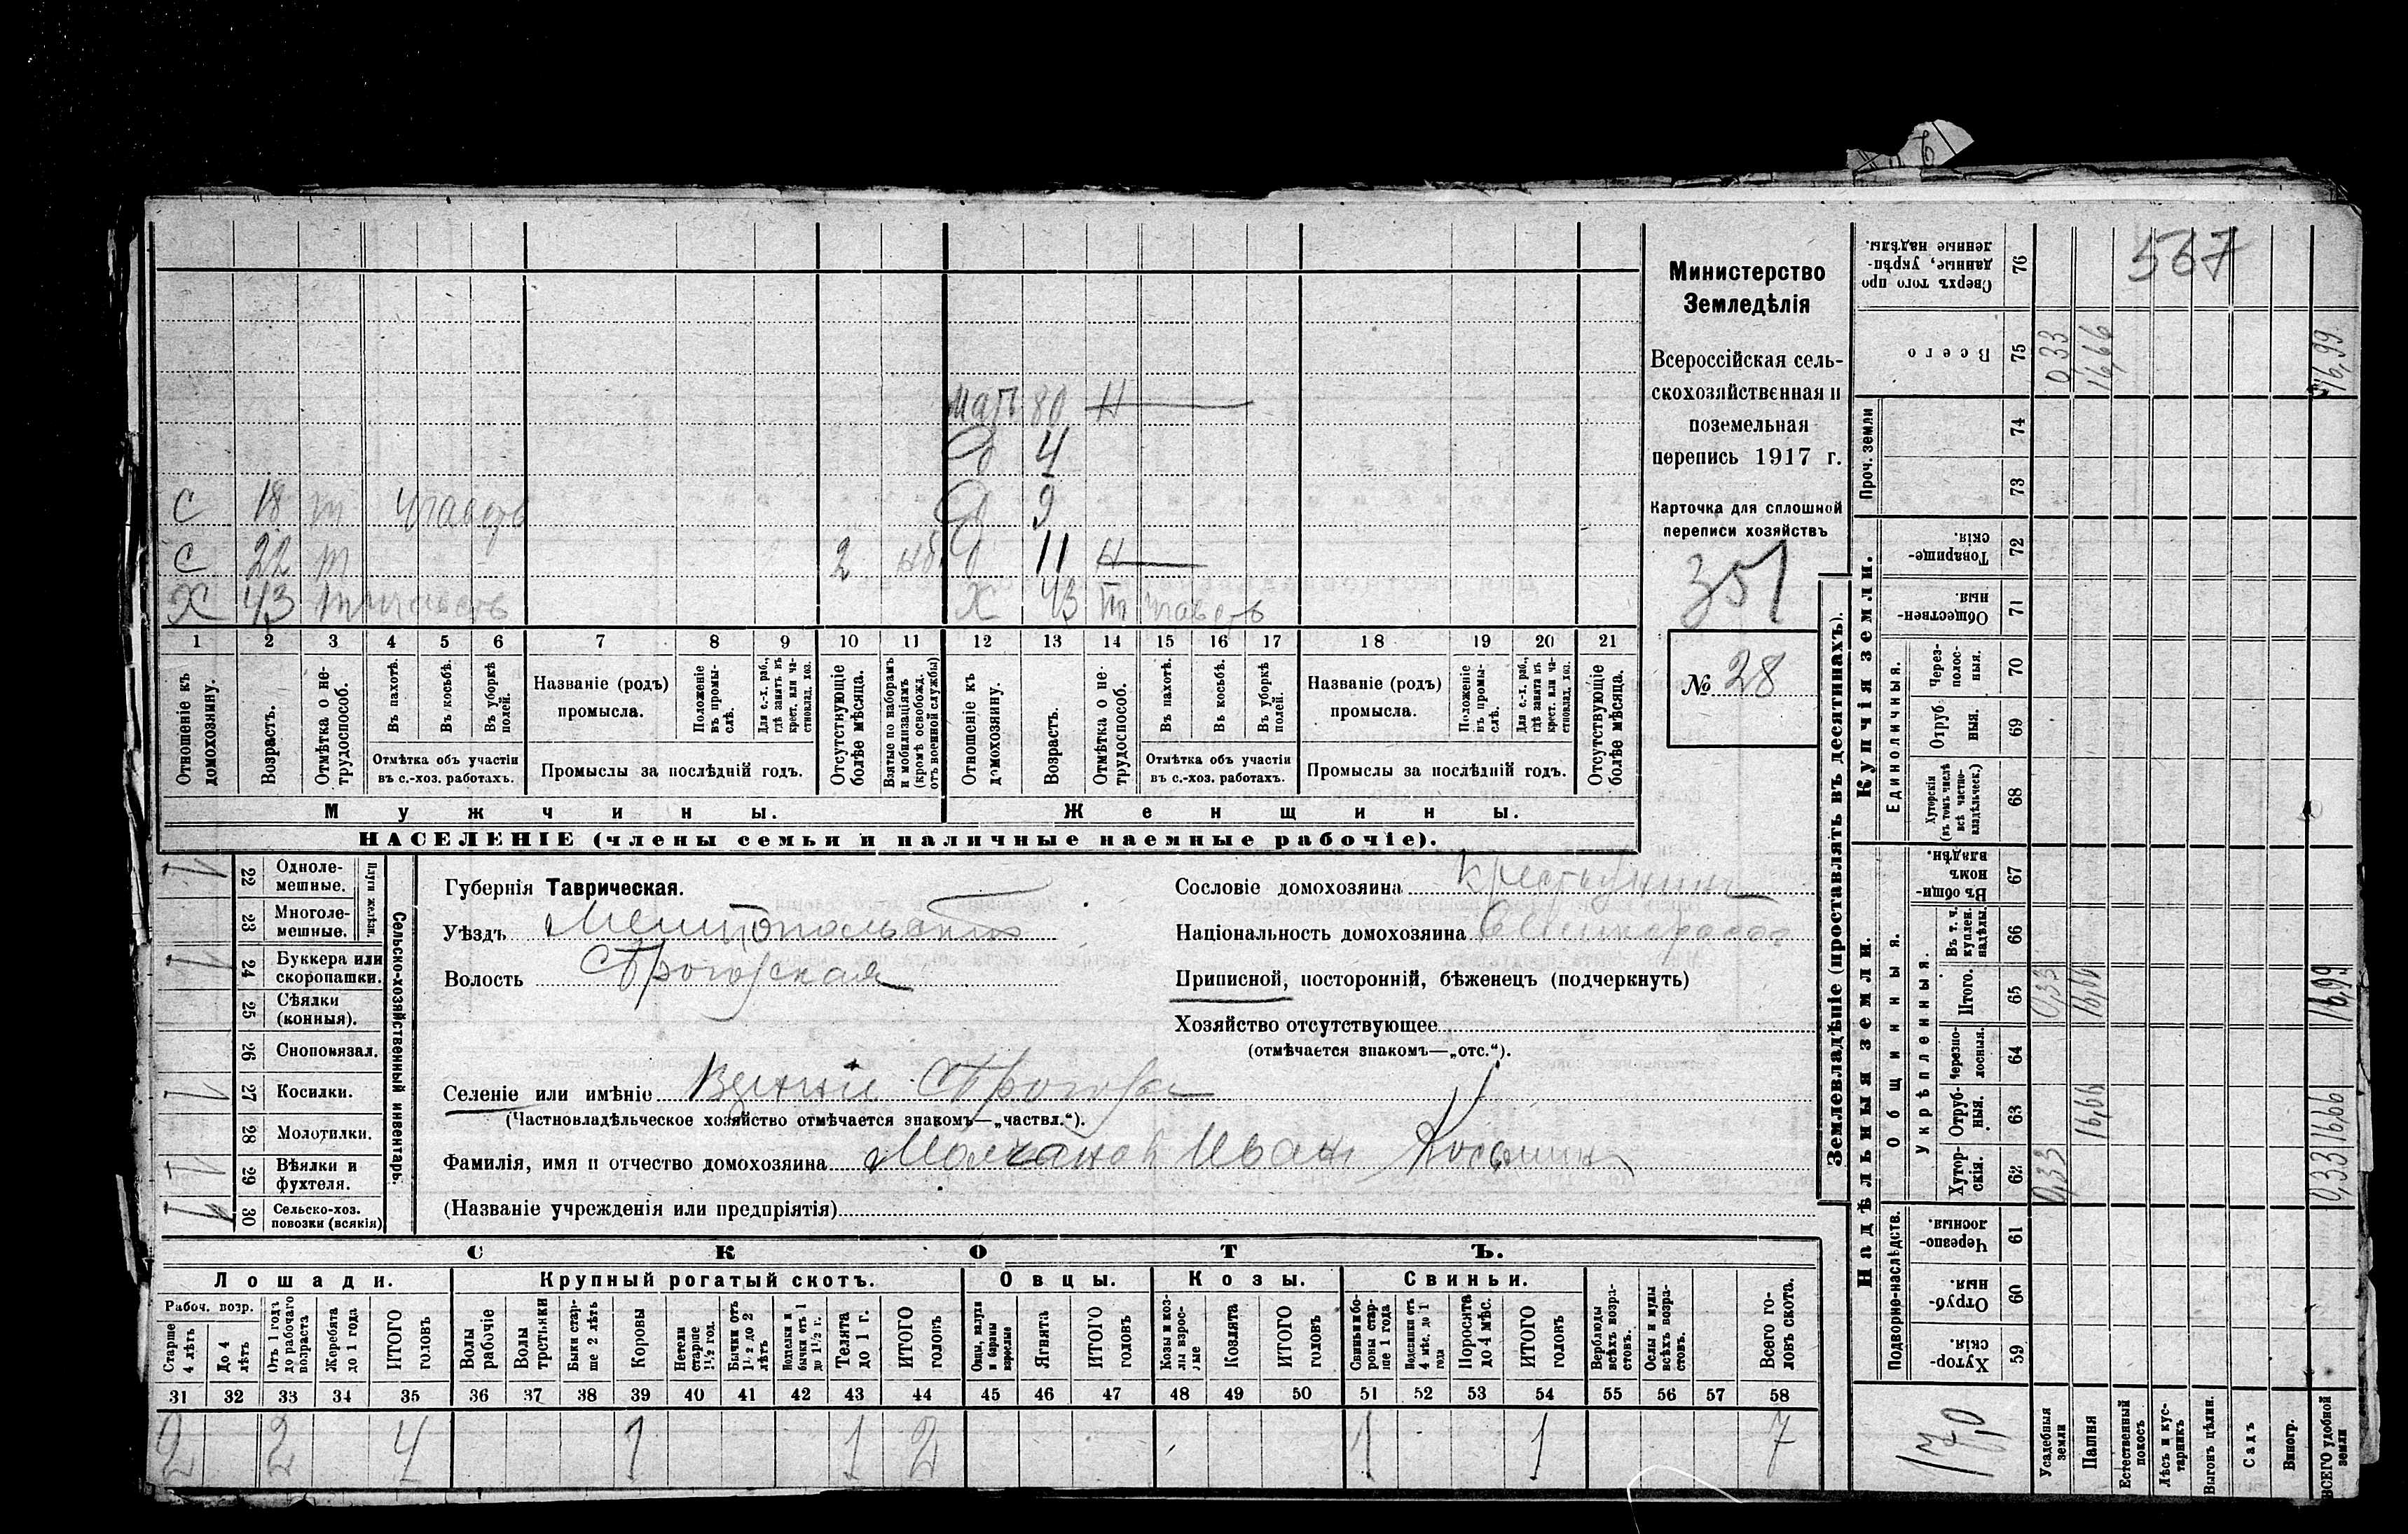 567
Министерство
Земледѣлія
Всероссійская сель-
скохозяйственная и
поземельная
перепись 1917 г.
Карточка для сплошной
переписи хозяйствъ
351
№ 28
мать 80 Н
д 4
С 18 т участв д 9
С 22 т 2 д 11 Н
Х 43 т участв Х 43 т участв
1 2 3 4 5 6 7 8 9 10 11 12 13 14 15 16 17 18 19 20 21
Отношеніе къ домохозяину.
Возрастъ.
Отмѣтка о не-трудоспособ.
Въ пахотѣ.
Въ косьбѣ.
Въ уборкѣ полей.
Отмѣтка объ участіи
въ с.-хоз. работахъ.
Названіе (родъ)
промысла.
Положеніе въ промы-слѣ.
Для с.-х. раб., гдѣ занятъ въ крест. или ча-стновлад. хоз.
Промыслы за послѣдній годъ.
Отсутствующіе болѣе мѣсяца.
Взятые по наборамъ и мобилизаціямъ (кромѣ освобожд. отъ военной службы)
Отношеніе къ домохозяину.
Возрастъ.
Отмѣтка о не-трудоспособ.
Въ пахотѣ.
Въ косьбѣ.
Въ уборкѣ полей.
Отмѣтка объ участіи
въ с.-хоз. работахъ.
Названіе (родъ)
промысла.
Положеніе въ промы-слѣ.
Для с.-х. раб., гдѣ занята въ крест. или ча-стновлад. хоз.
Промыслы за послѣдній годъ.
Отсутствующіе болѣе мѣсяца.
Мужчины. Женщины.
НАСЕЛЕНІЕ (члены семьи и наличные наемные рабочіе).
Сельско-хозяйственный инвентарь.
Плуги желѣз.
1 22 Одноле-мешные.
23 Многоле-мешные.
1 24 Буккера или скоропашки.
25 Сѣялки (конныя).
26 Сноповязал.
1 27 Косилки.
28 Молотилки.
1 29 Вѣялки и фухтеля.
30 Сельско-хоз. повозки (всякія)
Губернія Таврическая.
Уѣздъ Мелитопольскій
Волость Строгорская
Сословіе домохозяина Крестьянинъ
Національность домохозяина
Приписной, посторонній, бѣженецъ (подчеркнуть)
Хозяйство отсутствующее
(отмѣчается знакомъ—„отс.“).
Селеніе или имѣніе
(Частновладѣльческое хозяйство отмѣчается знакомъ—„частвл.“).
Фамилія, имя и отчество домохозяина Молчанов Иван
(Названіе учрежденія или предпріятія)
СКОТЪ.
Лошади. Крупный рогатый скотъ. Овцы. Козы. Свиньи.
Рабоч. возр.
Старше 4 лѣтъ
До 4 лѣтъ
Отъ 1 года до рабочаго возраста
Жеребята до 1 года
ИТОГО головъ
Волы рабочіе
Волы третьяки
Быки стар-ше 2 лѣтъ
Коровы
Нетели старше 1½ год.
Бычки отъ 1½ до 2 лѣтъ
Подтелки и бычки отъ 1 до 1½ г.
Телята до 1 г.
ИТОГО головъ
Овцы, валухи и бараны взрослые
Ягнята
ИТОГО головъ
Козы и коз-лы взрос-лые
Козлята
ИТОГО головъ
Свиньи и бо-ровы стар-ше 1 года
Подсвинки отъ 4 мѣс. до 1 года
Поросята до 4 мѣс.
ИТОГО головъ
Верблюды всѣхъ возра-стовъ.
Ослы и мулы всѣхъ возра-стовъ.
Всего го-ловъ скота.
31 32 33 34 35 36 37 38 39 40 41 42 43 44 45 46 47 48 49 50 51 52 53 54 55 56 57 58
2 2 4 1 1 2 1 1 7
Землевладѣніе (проставлять въ десятинахъ).
Надѣльныя земли.
Купчія земли.
Проч. земли
Подворно-наслѣдств.
Общинныя.
Укрѣпленныя.
Единоличныя.
Хутор-скія. 59
Отруб-ныя. 60
Черезпо-лосныя. 61
Хутор-скія. 62 0,33 0,33
Отруб-ныя. 63 16,66 16,66
Черезпо-лосныя. 64
Итого. 65 0,33 16,66 16,99
Въ т. ч. куплен. надѣлы. 66
Въ общин-номъ владѣн. 67
Хуторскія (въ томъ числѣ всѣ частно-владѣльческ.) 68
Отруб-ныя. 69
Через-полос-ныя. 70
Обществен-ныя. 71
Товарище-скія. 72
73
74
Всего 75 0,33 16,66 16,99
Сверхъ того про-данные, укрѣп-ленные надѣлы. 76
Усадебныя земли
Пашня
Естественный покосъ
Лѣсъ и кус-тарникъ
Выгонъ цѣлин.
Садъ
Виногр.
ВСЕГО удобной земли